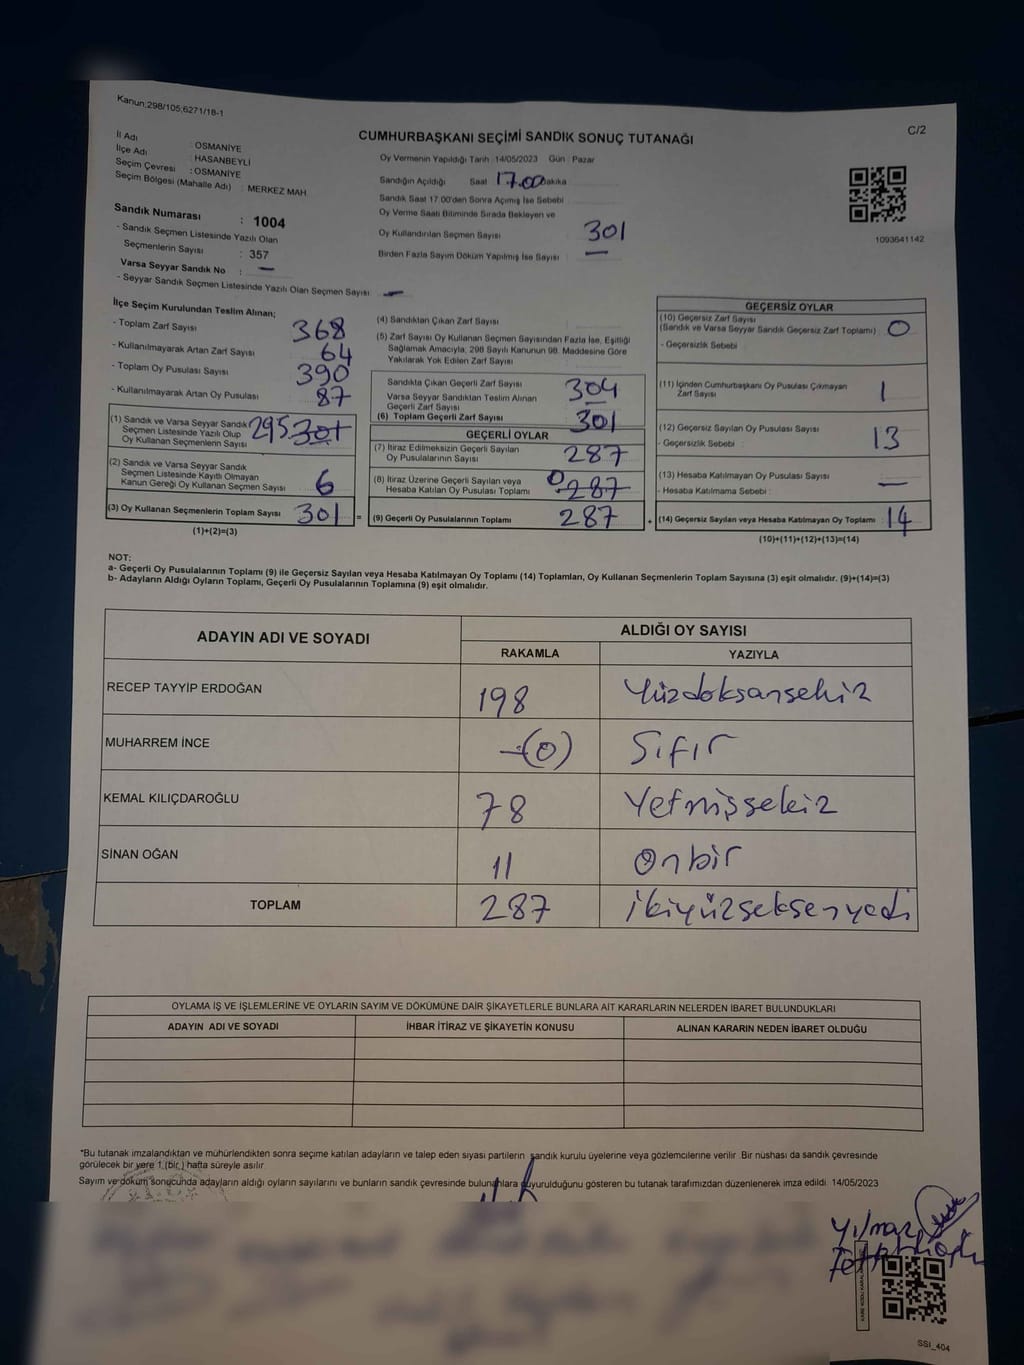 Kanun;298/105;6271/18-1
C/2
CUMHURBAŞKANI SEÇİMİ SANDIK SONUÇ TUTANAĞI
İl Adı : OSMANİYE
İlçe Adı : HASANBEYLİ
Seçim Çevresi : OSMANİYE
Seçim Bölgesi (Mahalle Adı) : MERKEZ MAH.
Sandık Numarası : 1004
- Sandık Seçmen Listesinde Yazılı Olan
Seçmenlerin Sayısı : 357
Varsa Seyyar Sandık No : —
- Seyyar Sandık Seçmen Listesinde Yazılı Olan Seçmen Sayısı —
Oy Vermenin Yapıldığı Tarih :14/05/2023 Gün : Pazar
Sandığın Açıldığı Saat 17.00 Dakika
Sandık Saat 17.00'den Sonra Açılmış İse Sebebi
Oy Verme Saati Bitiminde Sırada Bekleyen ve
Oy Kullandırılan Seçmen Sayısı 301
Birden Fazla Sayım Döküm Yapılmış İse Sayısı —
1093641142
İlçe Seçim Kurulundan Teslim Alınan;
- Toplam Zarf Sayısı 368
- Kullanılmayarak Artan Zarf Sayısı 64
- Toplam Oy Pusulası Sayısı 390
- Kullanılmayarak Artan Oy Pusulası 87
(1) Sandık ve Varsa Seyyar Sandık
Seçmen Listesinde Yazılı Olup
Oy Kullanan Seçmenlerin Sayısı 295 301
(2) Sandık ve Varsa Seyyar Sandık
Seçmen Listesinde Kayıtlı Olmayan
Kanun Gereği Oy Kullanan Seçmen Sayısı 6
(3) Oy Kullanan Seçmenlerin Toplam Sayısı 301 =
(1)+(2)=(3)
(4) Sandıktan Çıkan Zarf Sayısı
(5) Zarf Sayısı Oy Kullanan Seçmen Sayısından Fazla İse, Eşitliği
Sağlamak Amacıyla, 298 Sayılı Kanunun 98. Maddesine Göre
Yakılarak Yok Edilen Zarf Sayısı
Sandıkta Çıkan Geçerli Zarf Sayısı 304
Varsa Seyyar Sandıktan Teslim Alınan
Geçerli Zarf Sayısı —
(6) Toplam Geçerli Zarf Sayısı 301
GEÇERLİ OYLAR
(7) İtiraz Edilmeksizin Geçerli Sayılan
Oy Pusulalarının Sayısı 287
(8) İtiraz Üzerine Geçerli Sayılan veya
Hesaba Katılan Oy Pusulası Toplamı 0 287
(9) Geçerli Oy Pusulalarının Toplamı 287 +
GEÇERSİZ OYLAR
(10) Geçersiz Zarf Sayısı
(Sandık ve Varsa Seyyar Sandık Geçersiz Zarf Toplamı) 0
- Geçersizlik Sebebi :
(11) İçinden Cumhurbaşkanı Oy Pusulası Çıkmayan
Zarf Sayısı 1
(12) Geçersiz Sayılan Oy Pusulası Sayısı 13
- Geçersizlik Sebebi :
(13) Hesaba Katılmayan Oy Pusulası Sayısı —
- Hesaba Katılmama Sebebi :
(14) Geçersiz Sayılan veya Hesaba Katılmayan Oy Toplamı 14
(10)+(11)+(12)+(13)=(14)
NOT:
a- Geçerli Oy Pusulalarının Toplamı (9) ile Geçersiz Sayılan veya Hesaba Katılmayan Oy Toplamı (14) Toplamları, Oy Kullanan Seçmenlerin Toplam Sayısına (3) eşit olmalıdır. (9)+(14)=(3)
b- Adayların Aldığı Oyların Toplamı, Geçerli Oy Pusulalarının Toplamına (9) eşit olmalıdır.
ADAYIN ADI VE SOYADI ALDIĞI OY SAYISI
RAKAMLA YAZIYLA
RECEP TAYYİP ERDOĞAN 198 Yüzdoksansekiz
MUHARREM İNCE —(0) Sıfır
KEMAL KILIÇDAROĞLU 78 Yetmişsekiz
SİNAN OĞAN 11 Onbir
TOPLAM 287 ikiyüzseksenyedi
OYLAMA İŞ VE İŞLEMLERİNE VE OYLARIN SAYIM VE DÖKÜMÜNE DAİR ŞİKAYETLERLE BUNLARA AİT KARARLARIN NELERDEN İBARET BULUNDUKLARI
ADAYIN ADI VE SOYADI İHBAR İTİRAZ VE ŞİKAYETİN KONUSU ALINAN KARARIN NEDEN İBARET OLDUĞU
*Bu tutanak imzalandıktan ve mühürlendikten sonra seçime katılan adayların ve talep eden siyasi partilerin sandık kurulu üyelerine veya gözlemcilerine verilir. Bir nüshası da sandık çevresinde
görülecek bir yere 1 (bir) hafta süreyle asılır.
Sayım ve döküm sonucunda adayların aldığı oyların sayılarını ve bunların sandık çevresinde bulunanlara duyurulduğunu gösteren bu tutanak tarafımızdan düzenlenerek imza edildi. 14/05/2023
Yılmaz
SSI_404